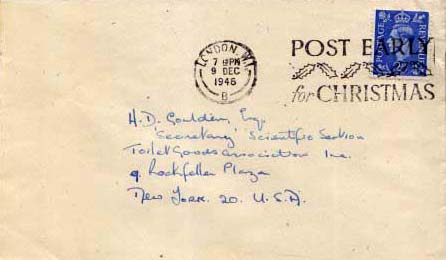 LONDON. W.1
7 15PM
9 DEC
1946
B
POST EARLY
for CHRISTMAS
POSTAGE REVENUE
H.D. Goulden, Esq.
'Secretary' Scientific Section
Toilet Goods Association Inc.
9 Rockfeller Plaza
New York. 20. U.S.A.